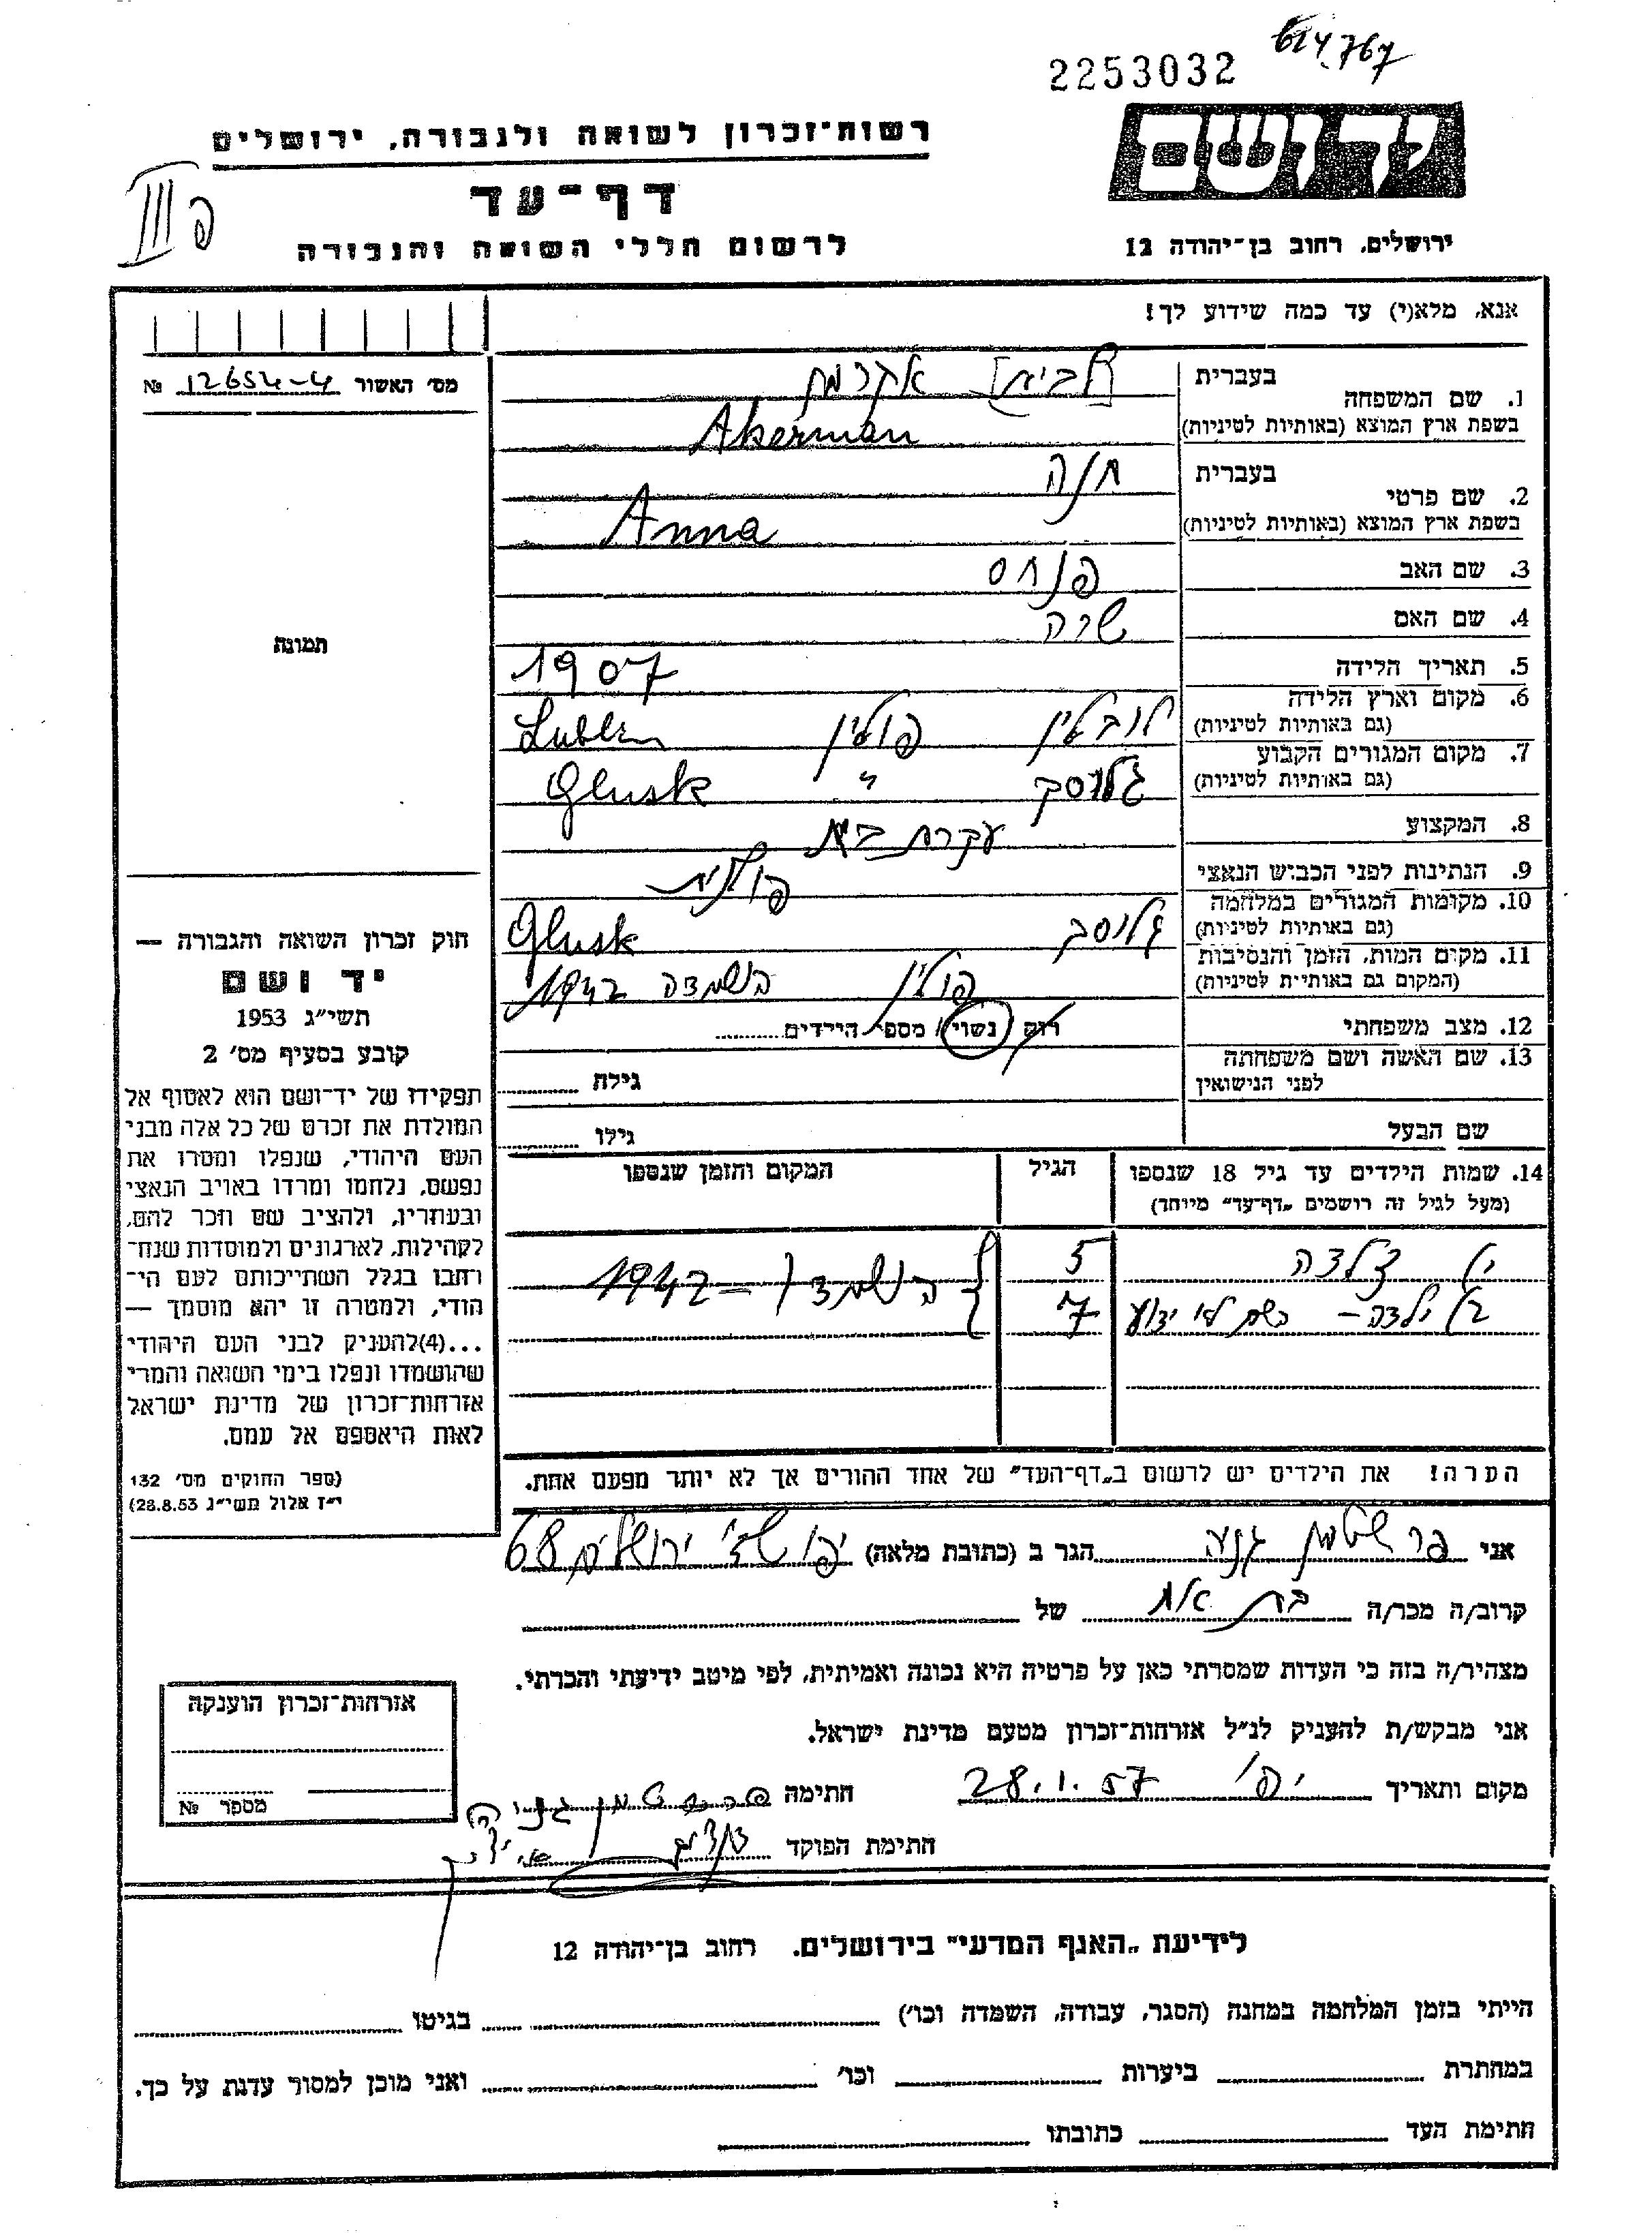 614767
2253032
יד ושם
רשות־זכרון לשואה ולגבורה, ירושלים
דף־עד
לרשום חללי השואה והגבורה
ירושלים, רחוב בן־יהודה 12
פ III
אנא, מלא(י) עד כמה שידוע לך!
מס׳ האשור 12654-4 №
תמונה
1. שם המשפחה
בעברית [לביא] אקרמן
בשפת ארץ המוצא (באותיות לטיניות) Akerman
2. שם פרטי
בעברית חנה
בשפת ארץ המוצא (באותיות לטיניות) Anna
3. שם האב פנחס
4. שם האם שרה
5. תאריך הלידה 1907
6. מקום וארץ הלידה
(גם באותיות לטיניות) לובלין פולין Lublin
7. מקום המגורים הקבוע
(גם באותיות לטיניות) גלוסק " Glusk
8. המקצוע עקרת בית
9. הנתינות לפני הכבוש הנאצי פולנית
10. מקומות המגורים במלחמה
(גם באותיות לטיניות) גלוסק Glusk
11. מקום המות, הזמן והנסיבות
(המקום גם באותיות לטיניות) פולין הושמדה 1942
12. מצב משפחתי רוק / נשוי / מספר הילדים
13. שם האשה ושם משפחתה
לפני הנישואין גילה
שם הבעל גילו
14. שמות הילדים עד גיל 18 שנספו הגיל המקום והזמן שנספו
(מעל לגיל זה רושמים „דף־עד" מיוחד)
5 הושמדו - 1942
ילדה - השם לא ידוע 7
הערה! את הילדים יש לרשום ב„דף־העד" של אחד ההורים אך לא יותר מפעם אחת.
חוק זכרון השואה והגבורה —
יד ושם
תשי״ג 1953
קובע בסעיף מס׳ 2
תפקידו של יד־ושם הוא לאסוף אל
המולדת את זכרם של כל אלה מבני
העם היהודי, שנפלו ומסרו את
נפשם, נלחמו ומרדו באויב הנאצי
ובעוזריו, ולהציב שם וזכר להם,
לקהילות, לארגונים ולמוסדות שנח־
רבו בגלל השתייכותם לעם הי־
הודי, ולמטרה זו יהא מוסמך —
...(4)להעניק לבני העם היהודי
שהושמדו ונפלו בימי השואה והמרי
אזרחות־זכרון של מדינת ישראל
לאות היאספם אל עמם.
(ספר החוקים מס׳ 132
י״ז אלול תשי״ג 28.8.53)
אני הגר ב (כתובת מלאה) יפו שד׳ ירושלים 68
קרוב/ה מכר/ה בת אח של
מצהיר/ה בזה כי העדות שמסרתי כאן על פרטיה היא נכונה ואמיתית, לפי מיטב ידיעתי והכרתי.
אני מבקש/ת להעניק לנ״ל אזרחות־זכרון מטעם מדינת ישראל.
מקום ותאריך יפו 28.1.57 חתימה
חתימת הפוקד
אזרחות־זכרון הוענקה
מספר №
לידיעת „האגף המדעי" בירושלים. רחוב בן־יהודה 12
הייתי בזמן המלחמה במחנה (הסגר, עבודה, השמדה וכו׳) בגיטו
במחתרת ביערות וכו׳ ואני מוכן למסור עדות על כך.
חתימת העד כתובתו